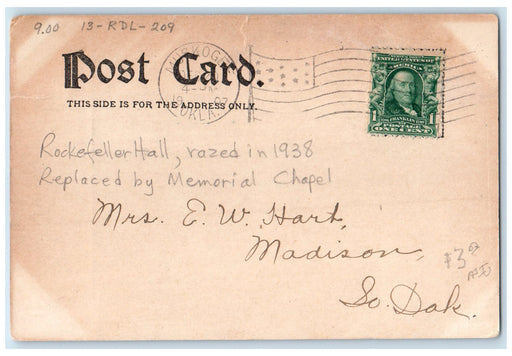 9.00 13-RDL-209
Post Card.
THIS SIDE IS FOR THE ADDRESS ONLY.
MUSKOGEE
OKLA.
UNITED STATES OF AMERICA
1 FRANKLIN 1
POSTAGE
ONE CENT
Rockefeller Hall, razed in 1938
Replaced by Memorial Chapel
Mrs. E. W. Hart,
Madison,
$3
So. Dak.